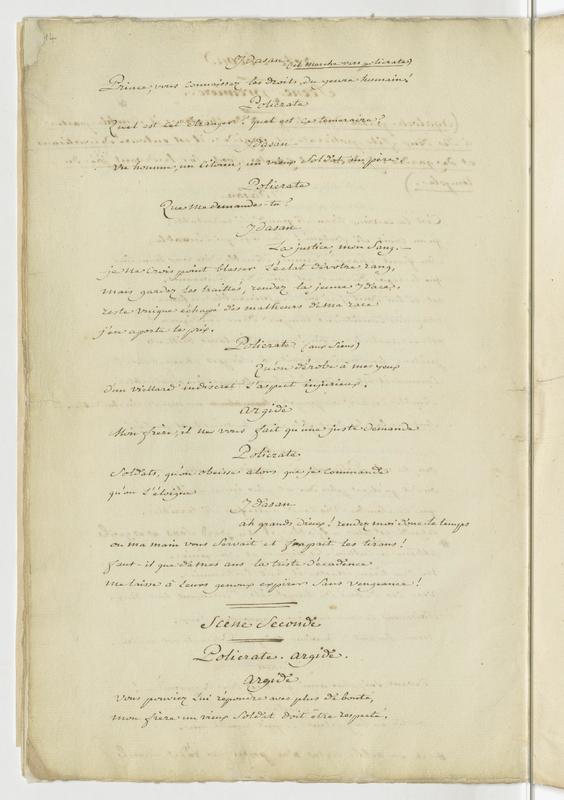 14
Ydasan (il marche vers policrate)
Prince, vous connaissez les droits du genre humain?
Policrate
Quel est cet etranger? Quel est ce temeraire?
Ydasan
un homme, un citoien, un vieux soldat, un père.
Policrate
Que me demandes-tu?
Ydasan
La justice, mon sang. —
je ne crois point blesser l'éclat de votre rang,
mais gardez les traittés, rendez la jeune Ydace,
reste unique échapé des malheurs de ma race
j'en aporte le prix.
Policrate (aux siens)
Qu'on dérobe à mes yeux
d'un viellard indiscret l'aspect injurieux.
argide
Mon frère, il ne vous fait qu'une juste demande
Policrate
Soldats, qu'on obeisse alors que je commande
qu'on l'éloigne
Ydasan
ah grands dieux! rendez moi donc le temps
ou ma main vous servait et frapait les tirans!
faut-il que de mes ans la triste décadence
me laisse à leurs genoux expirer sans vengeance!
Scène Seconde
Policrate. argide.
argide
vous pouviez lui répondre avec plus de bonté,
mon frère un vieux soldat doit être respecté.